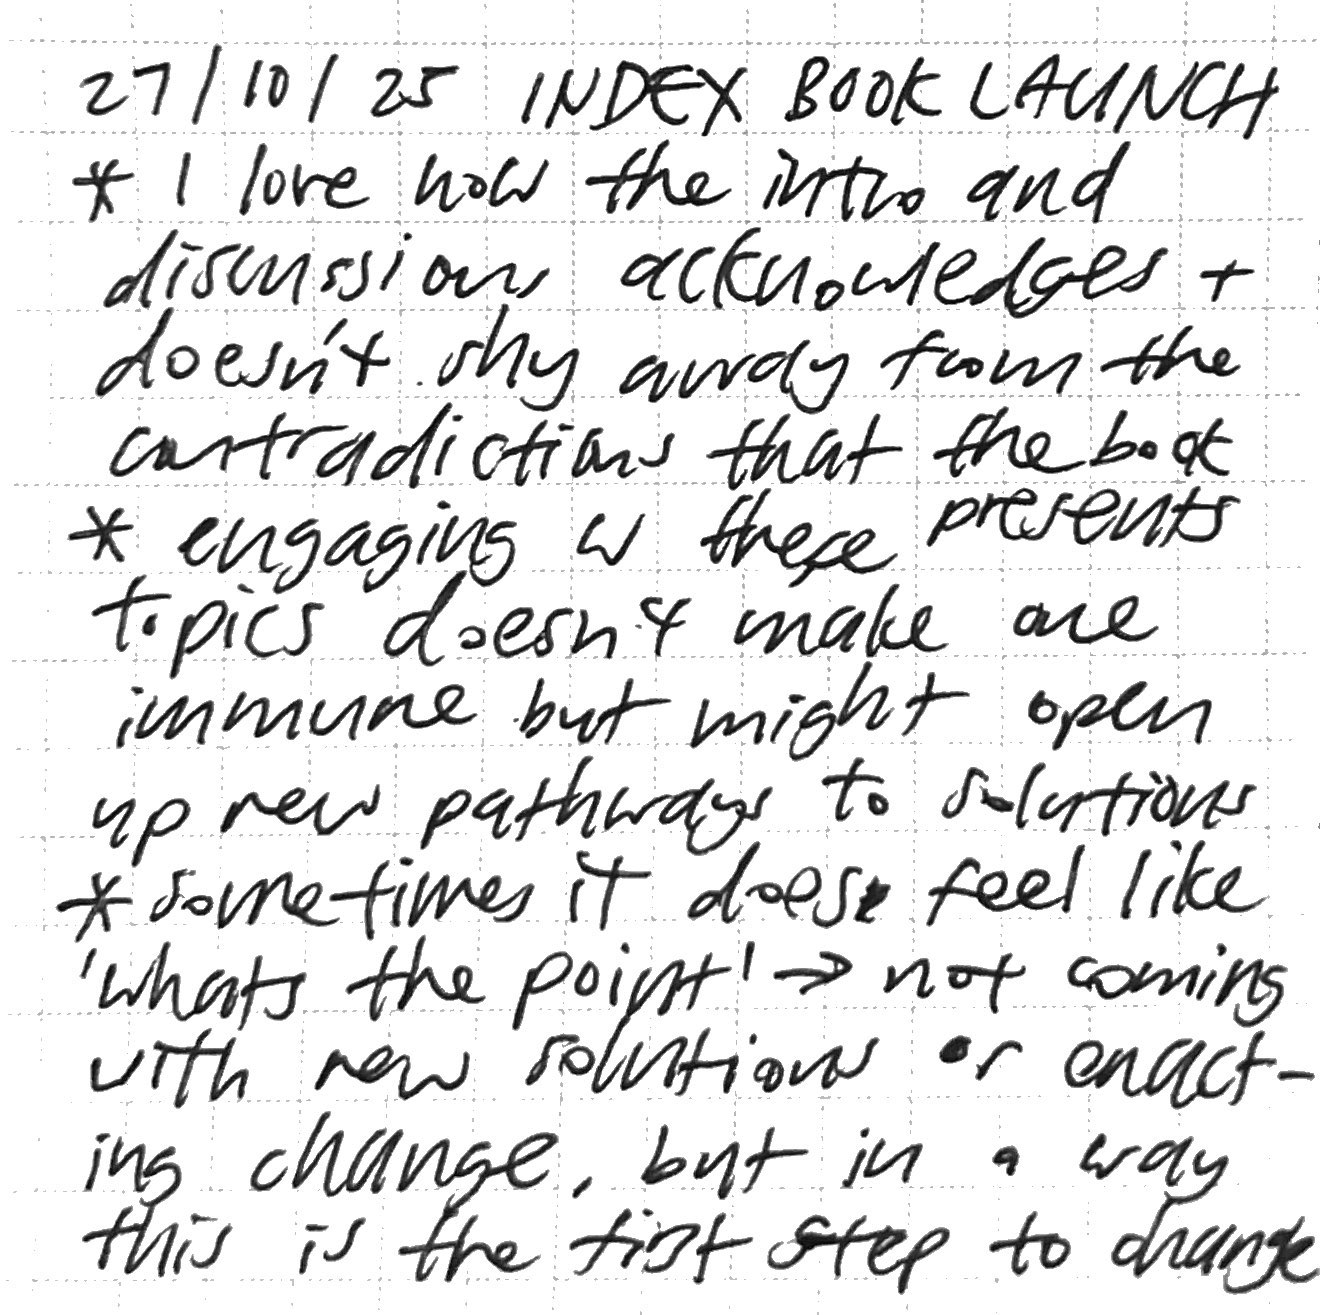 27/10/25 INDEX BOOK LAUNCH
* I love how the intro and
discussions acknowledges +
doesn't shy away from the
contradictions that the book
presents
* engaging w these
topics doesn't make one
immune but might open
up new pathways to solutions
* sometimes it does feel like
'whats the point' → not coming
with new solutions or enact-
ing change, but in a way
this is the first step to change